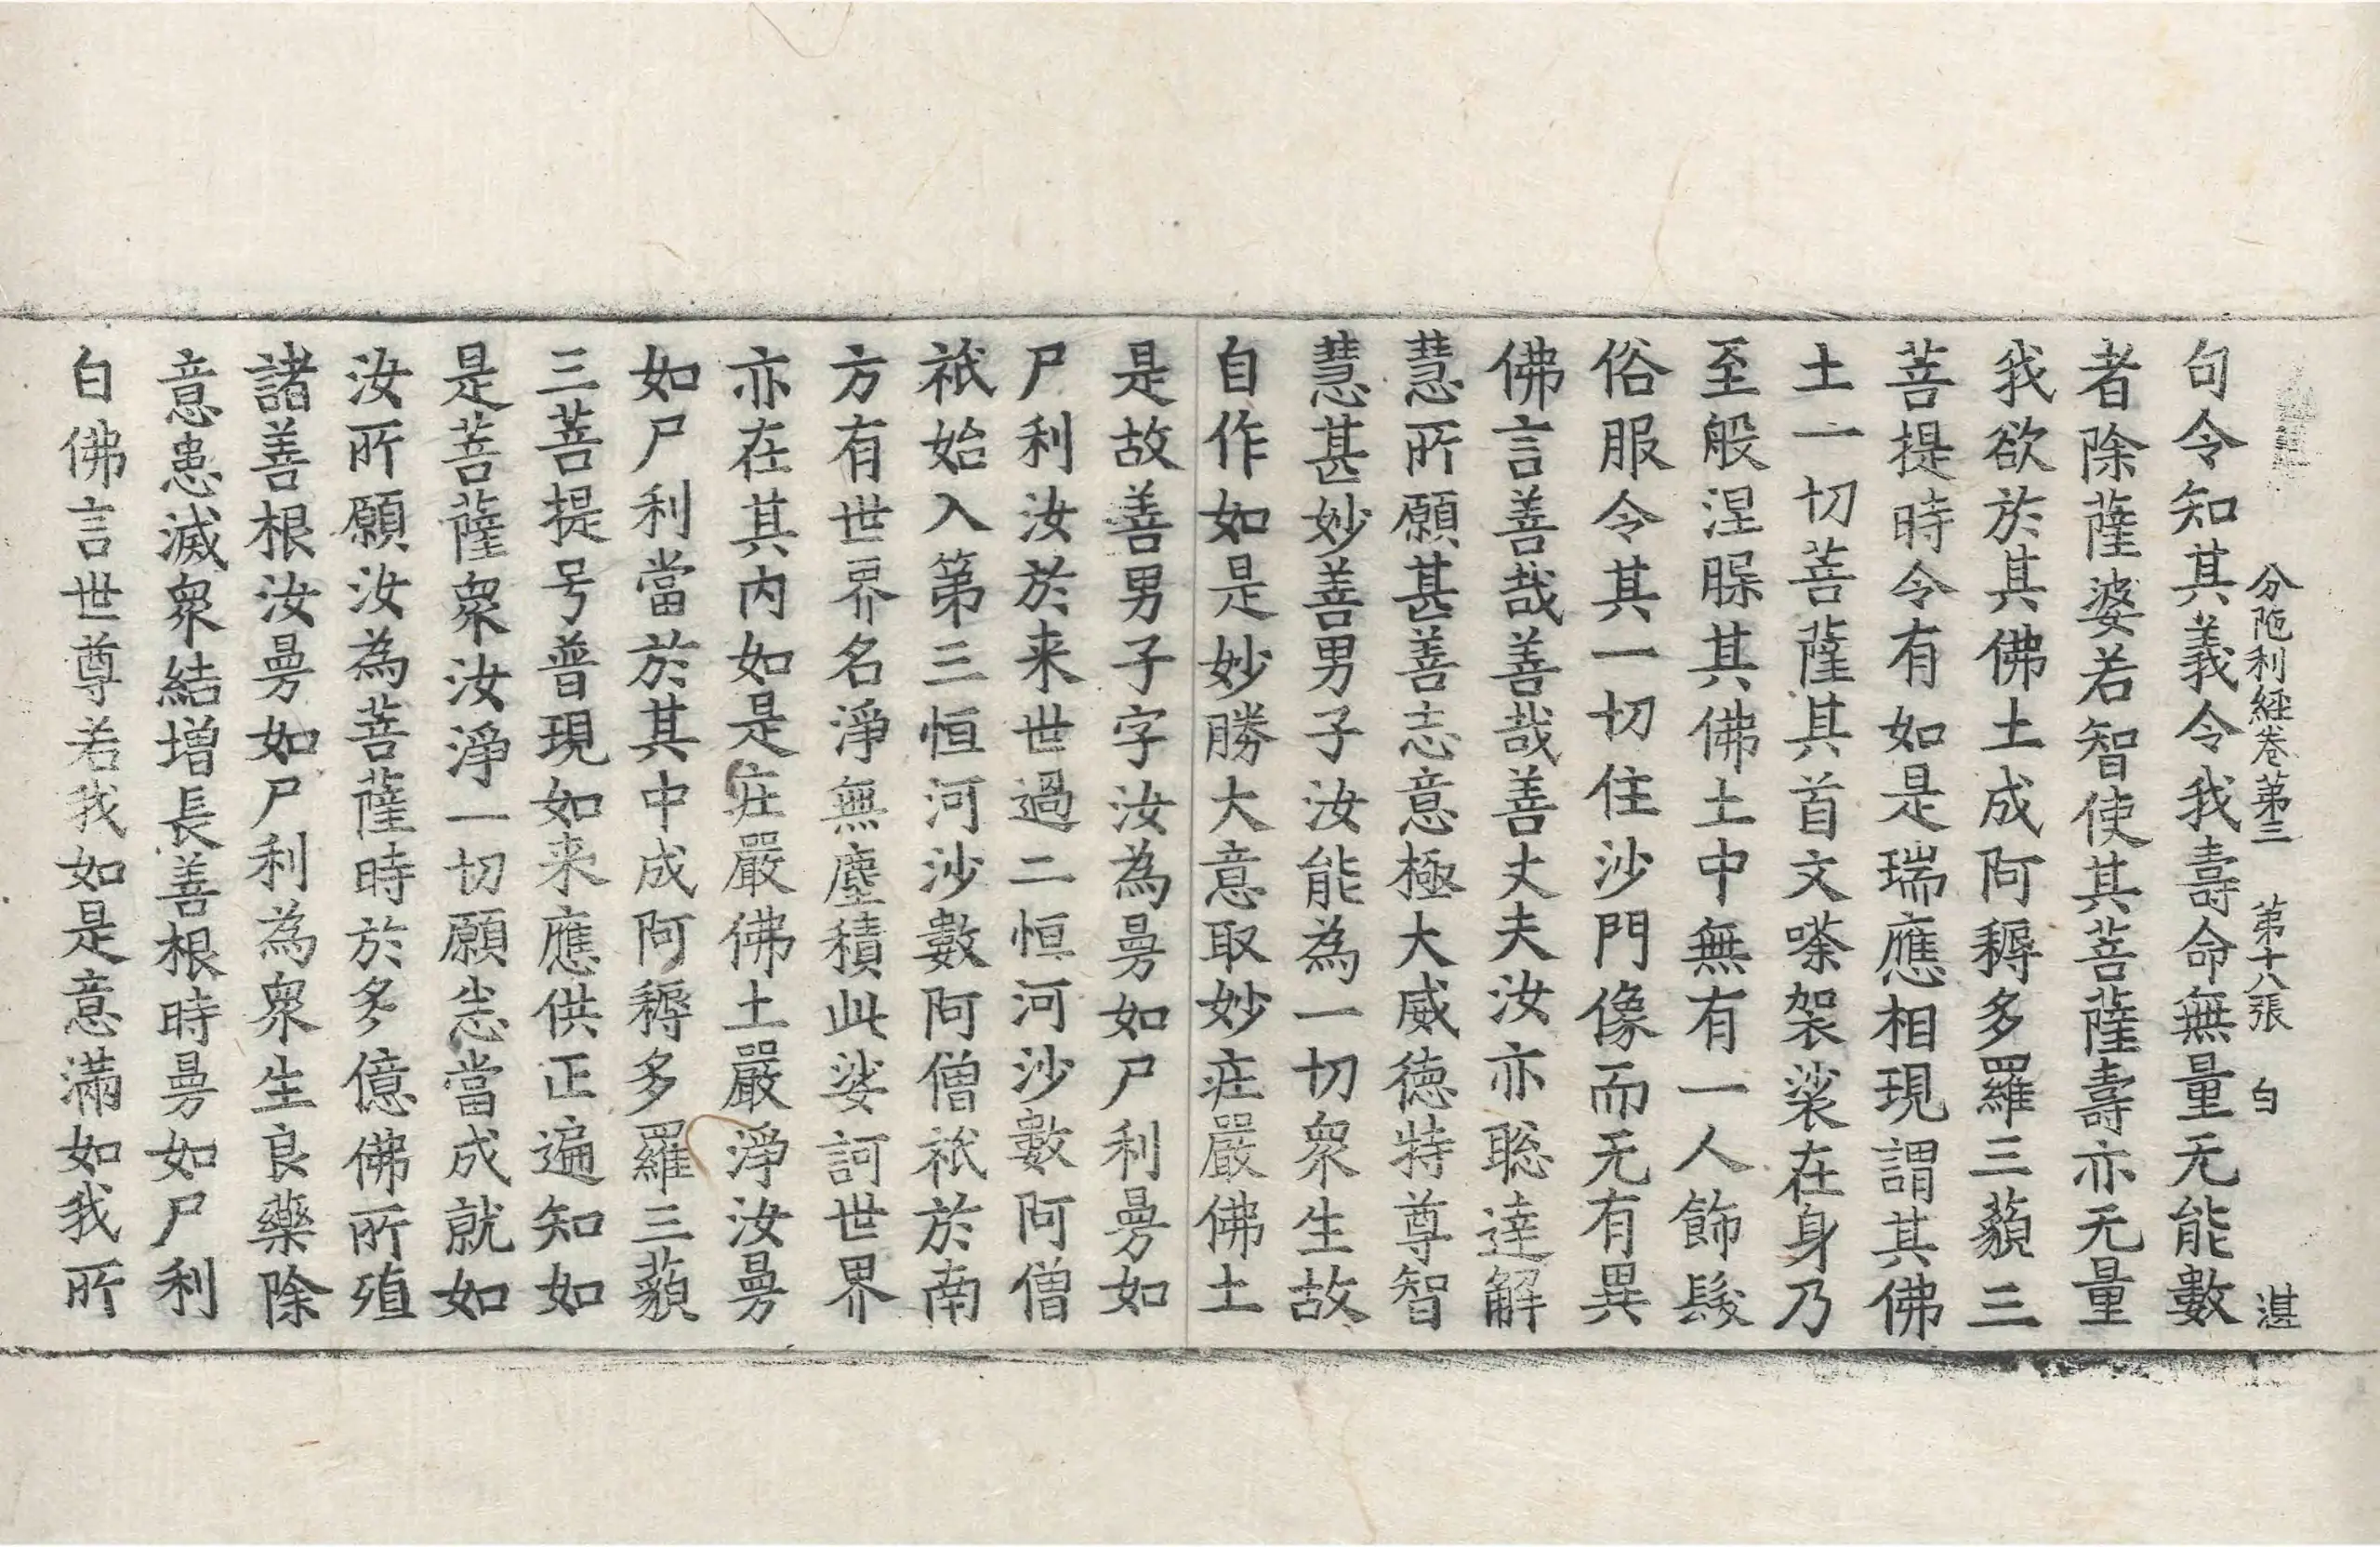 分陁利經卷第三　第十八張　白　湛
句令知其義令我壽命無量无能數
者除薩婆若智使其菩薩壽亦无量
我欲於其佛土成阿耨多羅三藐三
菩提時令有如是瑞應相現謂其佛
土一切菩薩其首文嗏袈裟在身乃
至般涅腂其佛土中無有一人飾髮
俗服令其一切住沙門像而无有異
佛言善哉善哉善丈夫汝亦聡達解
慧所願甚善志意極大威德特尊智
慧甚妙善男子汝能為一切衆生故
自作如是妙勝大意取妙庄嚴佛土
是故善男子字汝為曼如尸利曼如
尸利汝於来世過二恒河沙數阿僧
祇始入第三恒河沙數阿僧祇於南
方有世界名淨無塵積此娑訶世界
亦在其内如是庄嚴佛土嚴淨汝曼
如尸利當於其中成阿耨多羅三藐
三菩提号普現如来應供正遍知如
是菩薩衆汝淨一切願悉當成就如
汝所願汝為菩薩時於多億佛所殖
諸善根汝曼如尸利為衆生良藥除
意患滅衆結增長善根時曼如尸利
白佛言世尊若我如是意滿如我所